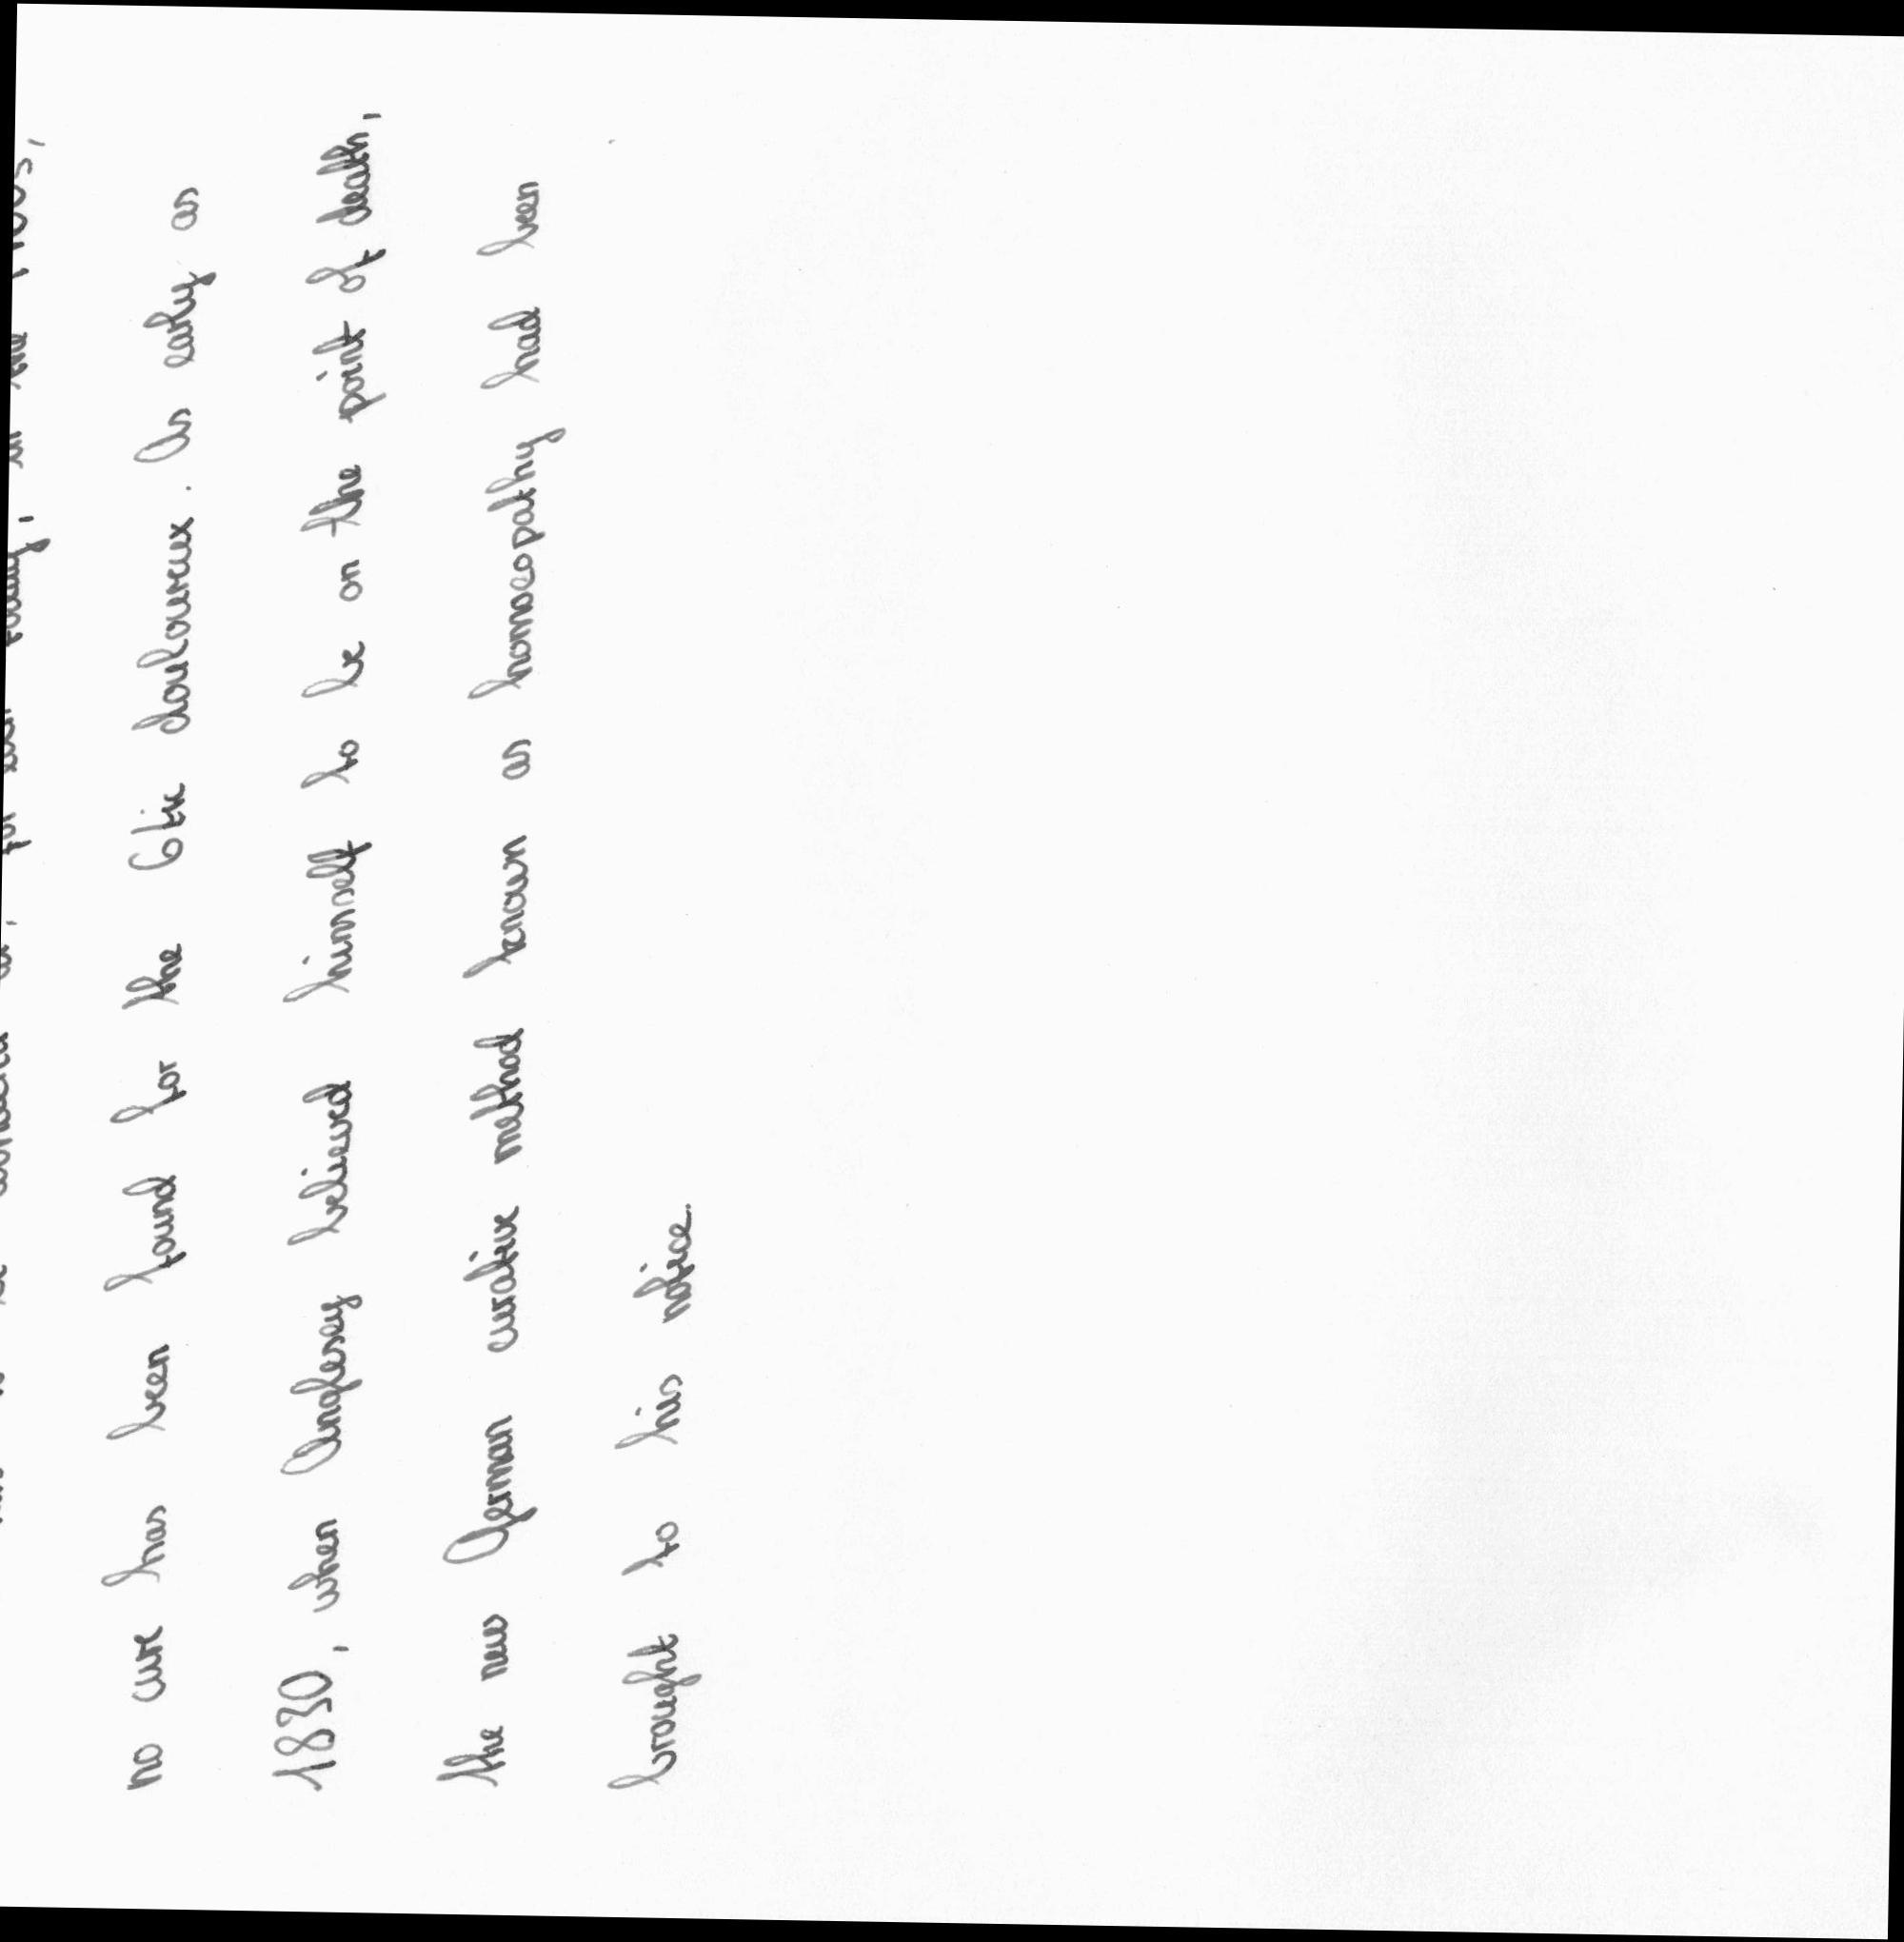 today, in the
no cure has been found for the 6tic douloureux. As early as
1830, when Anglesey believed himself to be on the point of death,
the new German curative method known as homoeopathy had been
brought to his notice.